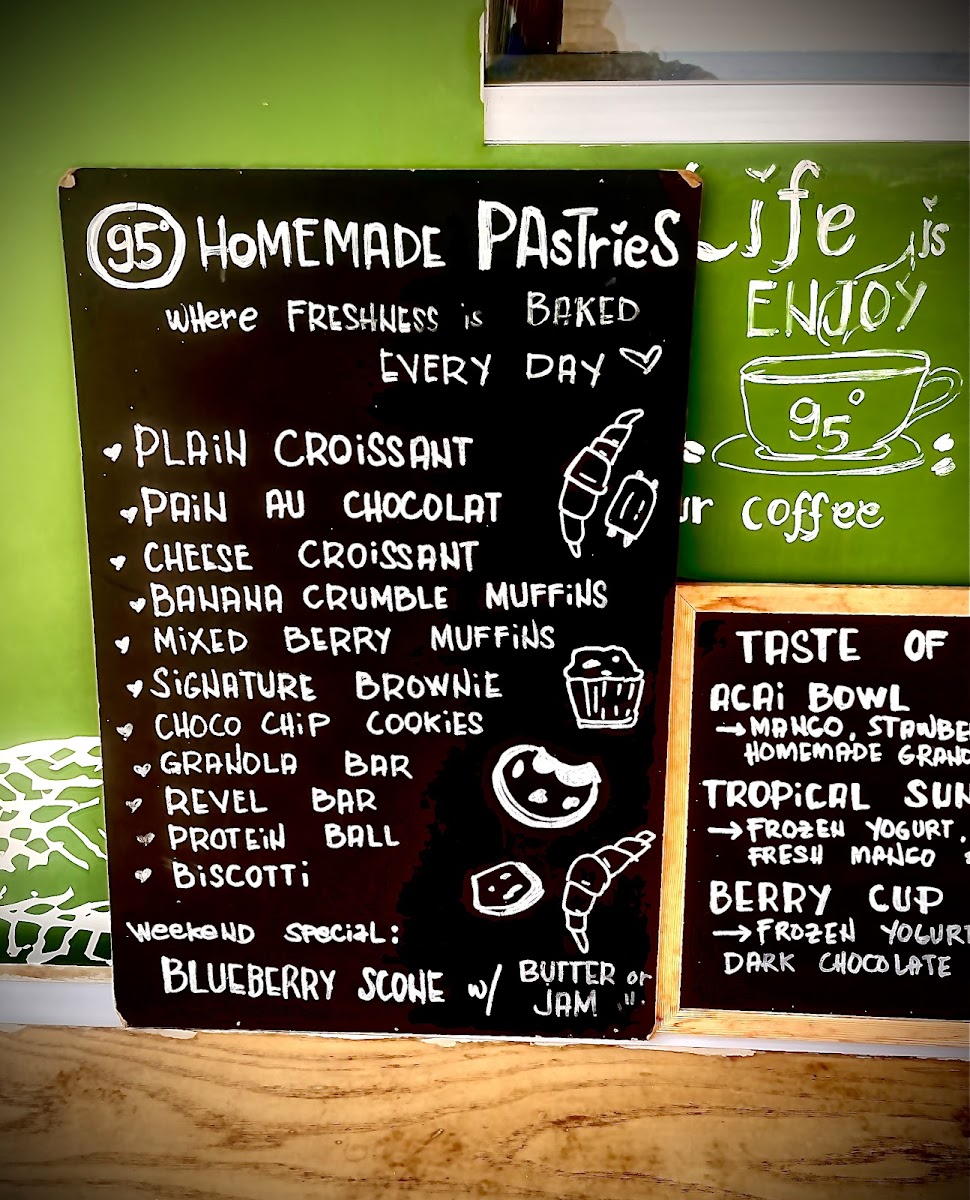 95° HOMEMADE PAsTrieS
wHere FRESHNESS is BAKED
EVERY DAY
PLAiN CROiSSANT
PAiN AU CHOCOLAT
CHEESE CROiSSANT
BANANA CRUMBLE MUFFiNS
MiXED BERRY MUFFiNS
SiGNATURE BROWNiE
CHOCO CHiP COOKiES
GRANOLA BAR
REVEL BAR
PROTEiN BALL
BiSCOTTi
WeekeND SPeCiAL:
BLUEBERRY SCONE w/ BUTTER or
JAM
Life is
ENJOY
95°
ur coffee
TASTE OF
ACAi BOWL
→MANGO, STAWBE
HOMEMADE GRANO
TROPiCAL SUN
→FROZEN YOGURT,
FRESH MANGO
BERRY CUP
→FROZEN YOGURT
DARK CHOCOLATE